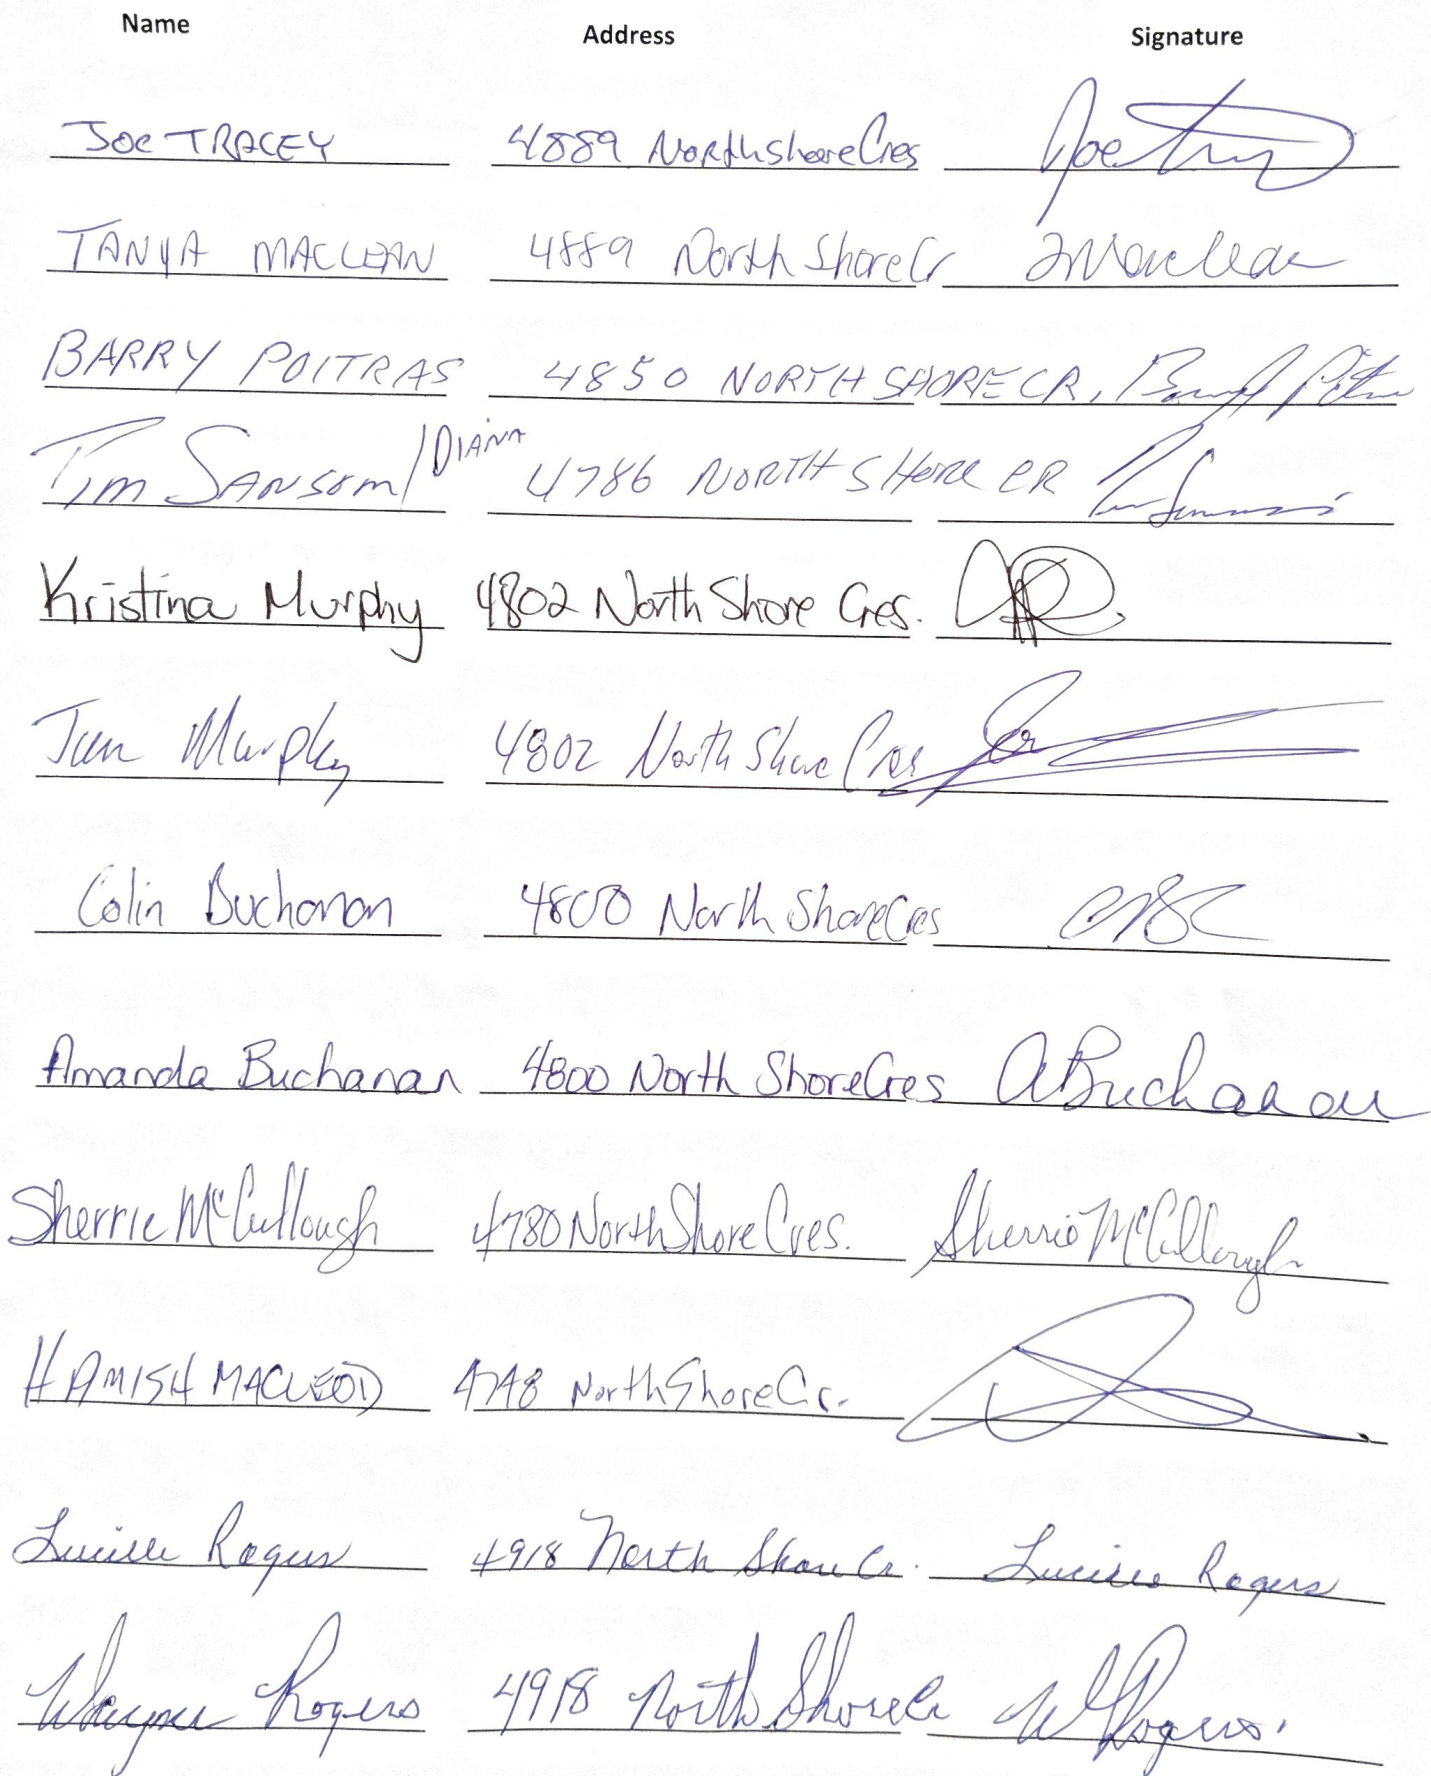 Name Address Signature
Joe TRACEY 4889 Northshore Cres Joe
TANYA MACLEAN 4889 North Shore Cr TMaclean
BARRY POITRAS 4850 NORTH SHORE CR, Barry
Tim SANSom/DIANA 4786 NORTH SHORE CR
Kristina Murphy 4802 North Shore Cres.
Murphy 4802 North Shore Cres
Colin Buchanan 4800 North Shore Cres
Amanda Buchanan 4800 North Shore Cres ABuchanan
Sherrie McCullough 4780 North Shore Cres. Sherrie McCullough
HAMISH MACLEOD 4748 North Shore Cr.
Lucille Rogers 4918 North Shore Cr. Lucille Rogers
Wayne Rogers 4918 North Shore Cr W Rogers.